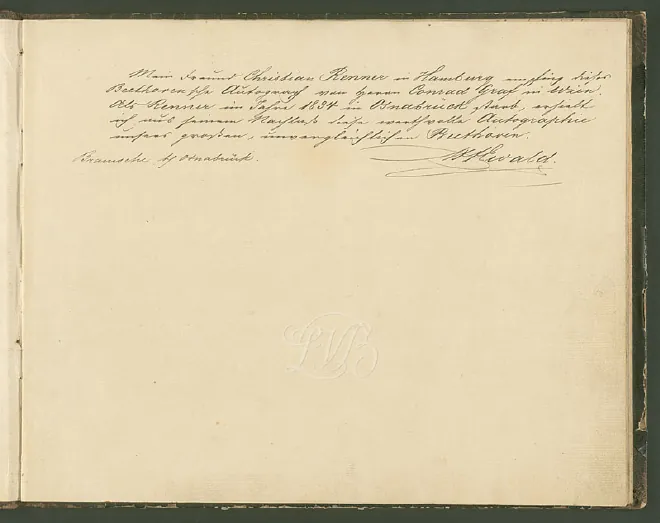 Mein Freund Christian Renner in Hamburg empfing dieses
Beethoven'sche Autograph von Herrn Conrad Graf in Wien.
Als Renner im Jahre 1834 in Osnabrück starb, erhielt
ich aus seinem Nachlaß diese werthvolle Autographie
unsers großen, unvergleichlichen Beethoven.
Bramsche b/ Osnabrück.
Ewald.
LVB